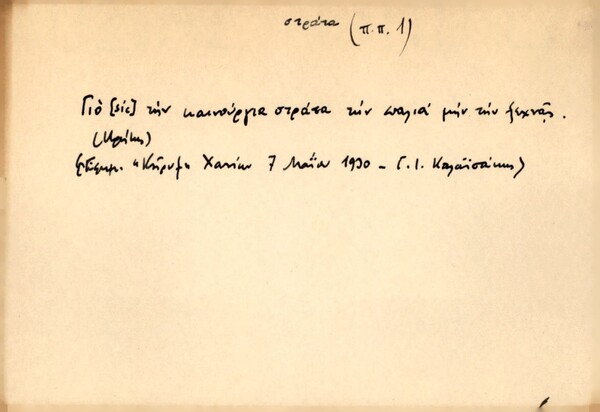 στράτα (π.π. 1)
Γιὸ [sic] τὴν καινούργια στράτα τὴν παλιά μὴν τὴν ξεχνᾷς.
(Κρήτης)
(Ἐφημ. "Κῆρυξ" Χανίων 7 Μαΐου 1930 - Γ. Ι. Καλαϊσάκης)